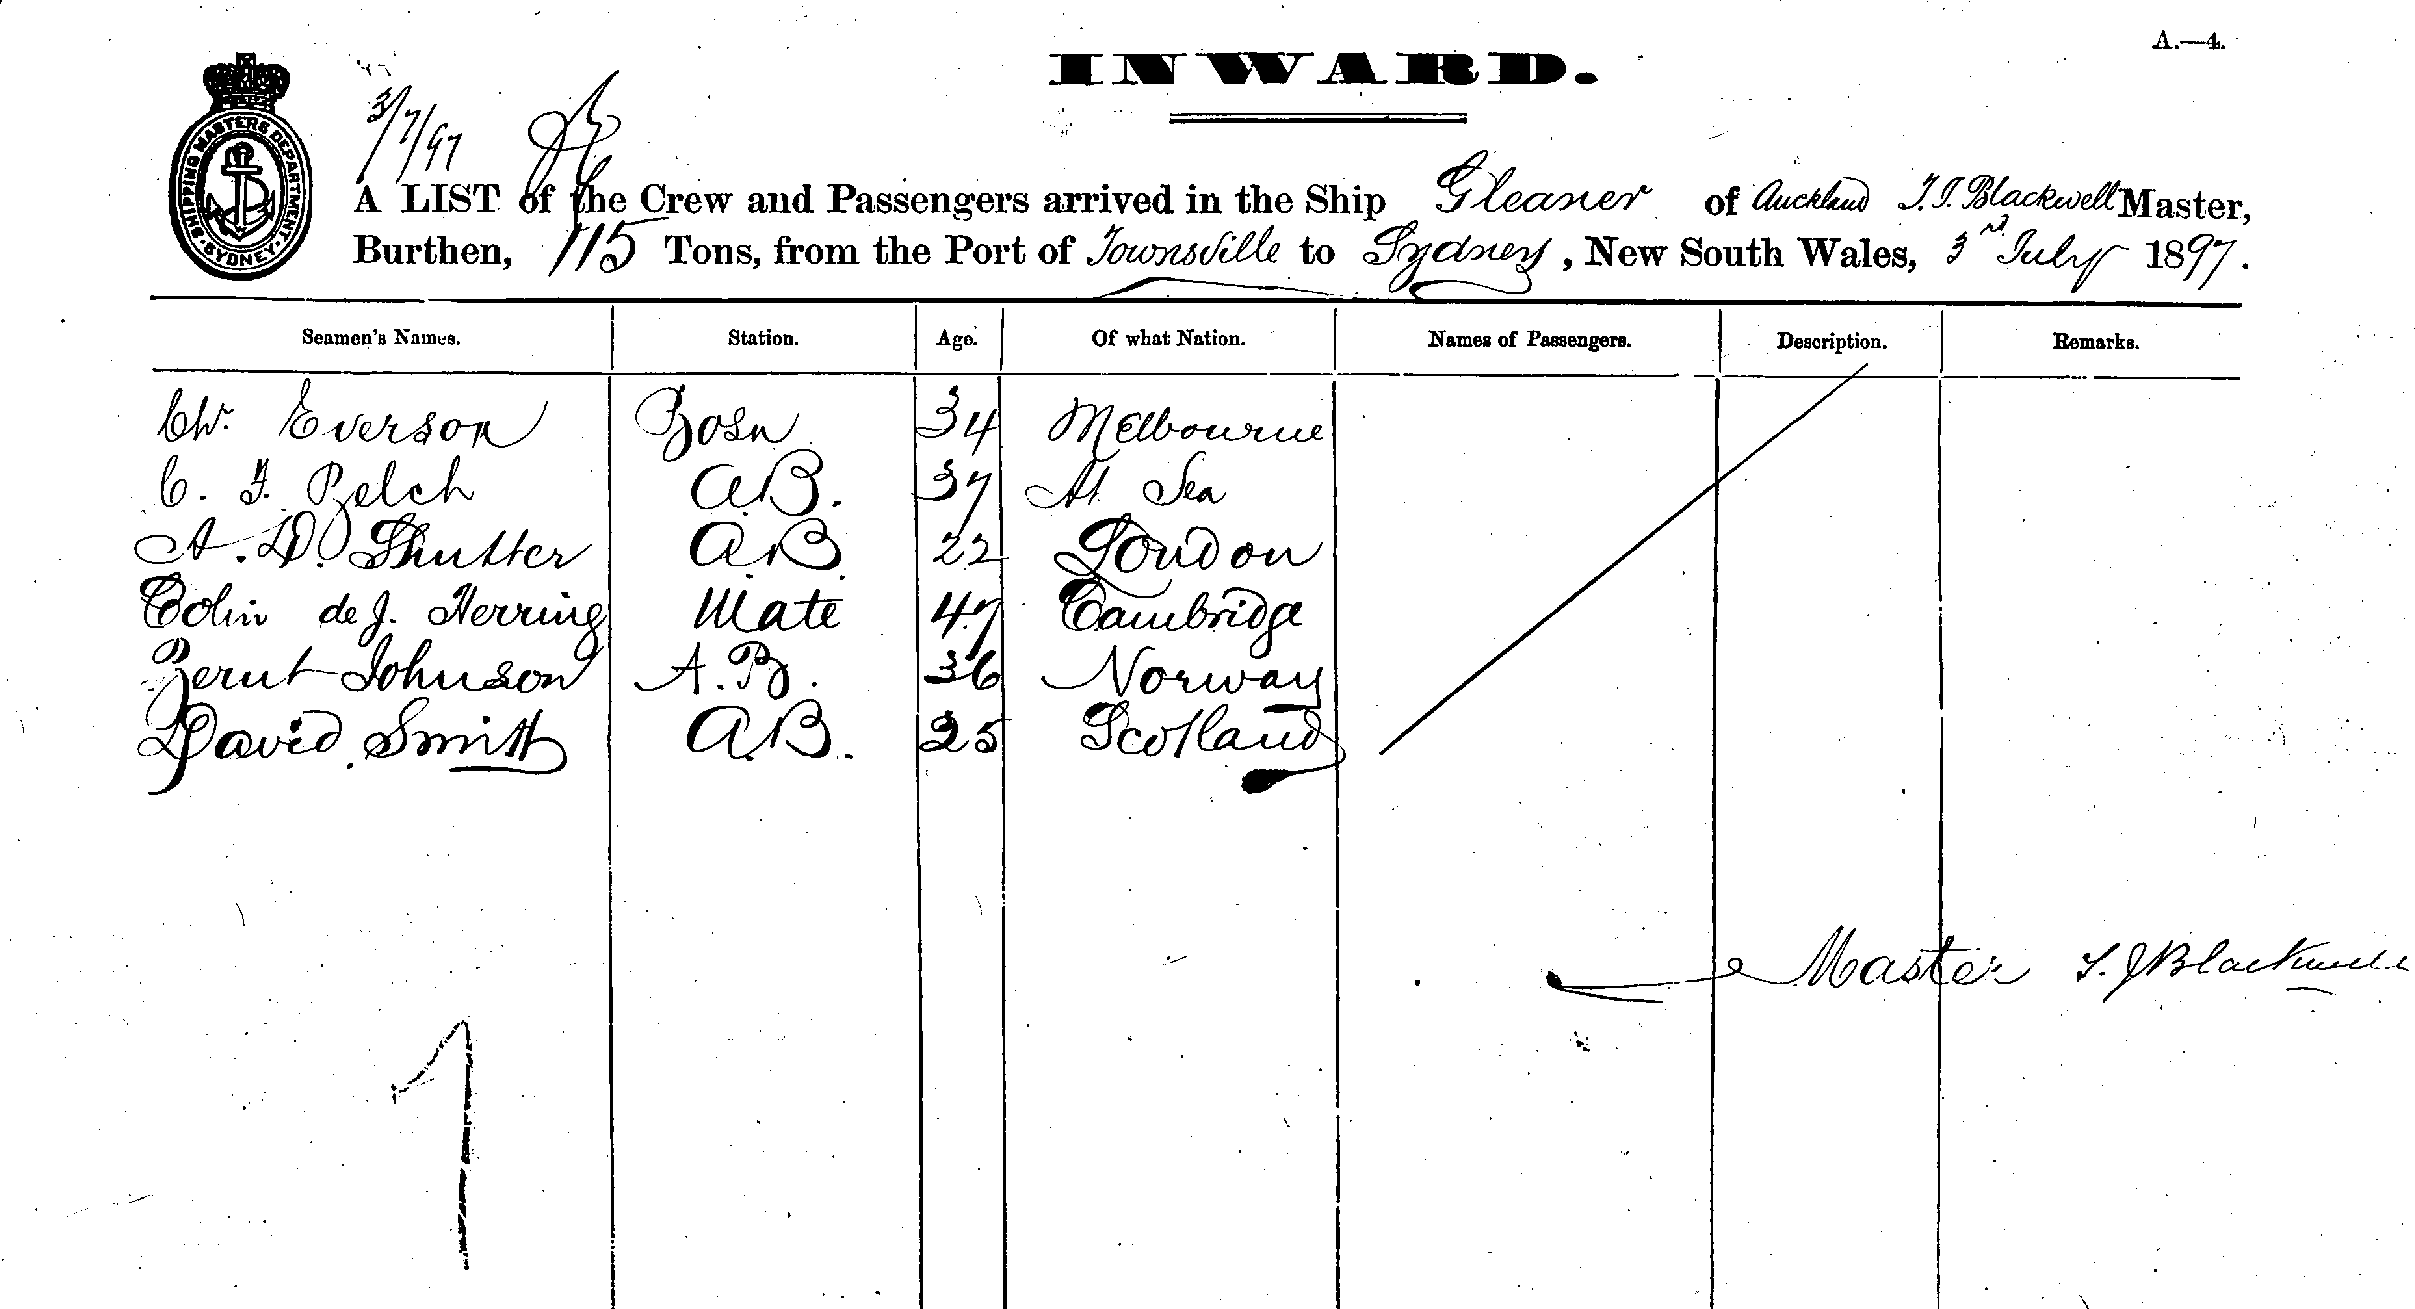 INWARD.
A.—4.
SHIPPING MASTERS DEPARTMENT. SYDNEY
3/7/97
A LIST of the Crew and Passengers arrived in the Ship Gleaner of Auckland T. J. Blackwell Master,
Burthen, 115 Tons, from the Port of Townsville to Sydney, New South Wales, 3rd July 1897.
Seamen's Names. Station. Age. Of what Nation. Names of Passengers. Description. Remarks.
Everson Bosn 34 Melbourne
C. F. Belch A.B. 37 At Sea
A. D. Shutter A.B. 22 London
Colin de J. Herring Mate 47 Cambridge
Bernt Johnson A.B. 36 Norway
David Smith A.B. 25 Scotland
Master T. J Blackwell
1